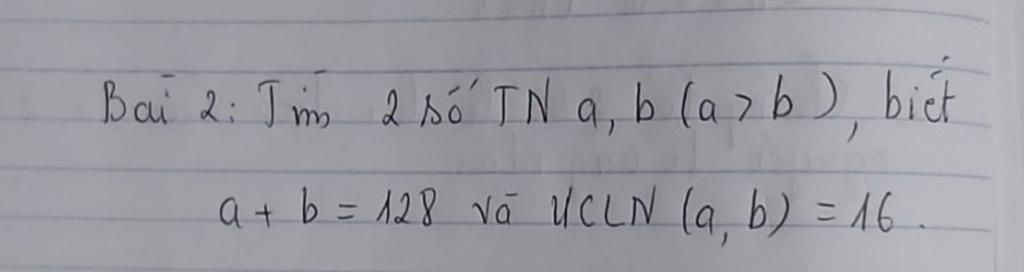 Bài 2: Tìm 2 số TN a, b (a > b), biết
a + b = 128 và ƯCLN (a, b) = 16.